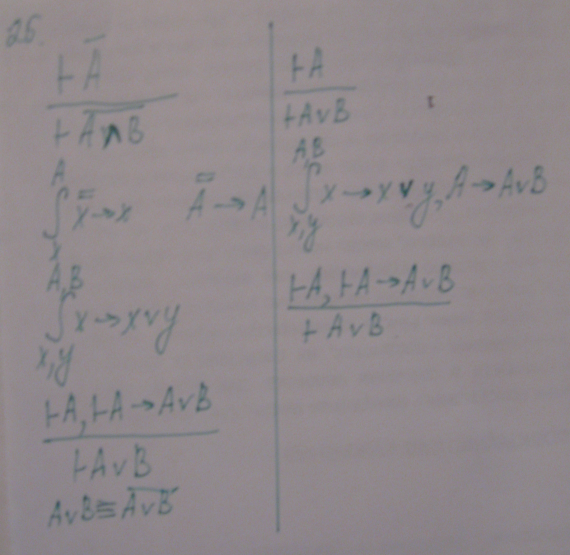 26.
⊢ A̅
⊢ \overline{A∧B}
A
∫ x̿ → x    A̿ → A
x
A,B
∫ x → x∨y
x,y
⊢A, ⊢A → A∨B
⊢A∨B
A∨B ≡ \overline{A∨B}
⊢A
⊢A∨B
A,B
∫ x → x∨y, A → A∨B
x,y
⊢A, ⊢A → A∨B
⊢A∨B